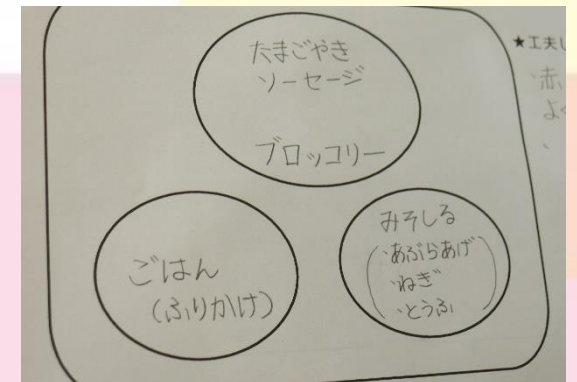 たまごやき
ソーセージ
ブロッコリー
ごはん
(ふりかけ)
みそしる
(・あぶらあげ
・ねぎ
・とうふ)
★工夫し
・赤、
よく
、